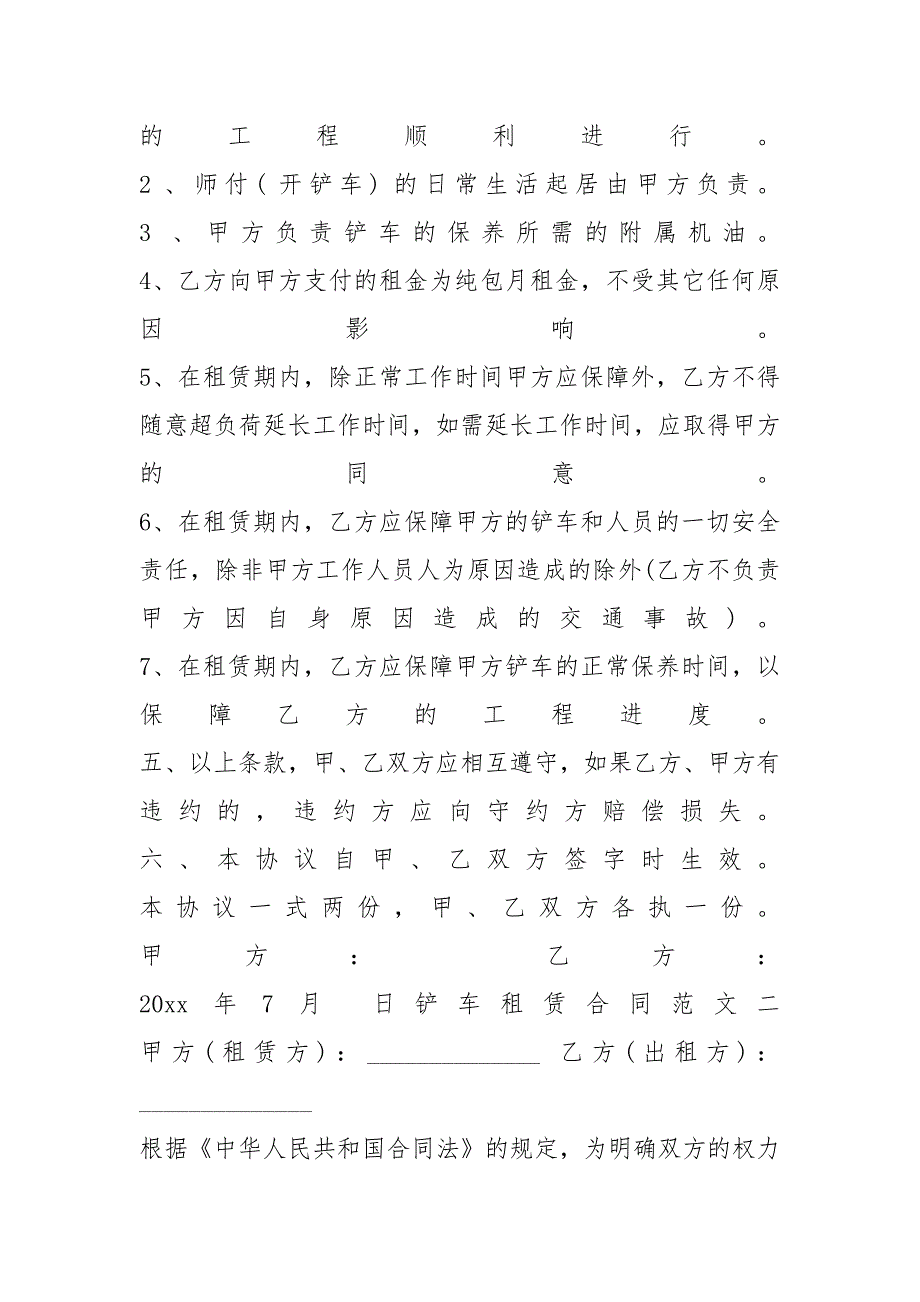 的工程顺利进行。
2、师付(开铲车)的日常生活起居由甲方负责。
3、甲方负责铲车的保养所需的附属机油。
4、乙方向甲方支付的租金为纯包月租金，不受其它任何原
因影响。
5、在租赁期内，除正常工作时间甲方应保障外，乙方不得
随意超负荷延长工作时间，如需延长工作时间，应取得甲方
的同意。
6、在租赁期内，乙方应保障甲方的铲车和人员的一切安全
责任，除非甲方工作人员人为原因造成的除外(乙方不负责
甲方因自身原因造成的交通事故)。
7、在租赁期内，乙方应保障甲方铲车的正常保养时间，以
保障乙方的工程进度。
五、以上条款，甲、乙双方应相互遵守，如果乙方、甲方有
违约的，违约方应向守约方赔偿损失。
六、本协议自甲、乙双方签字时生效。
本协议一式两份，甲、乙双方各执一份。
甲方： 乙方：
20xx年7月 日铲车租赁合同范文二
甲方(租赁方)：______________ 乙方(出租方)：
______________
根据《中华人民共和国合同法》的规定，为明确双方的权力